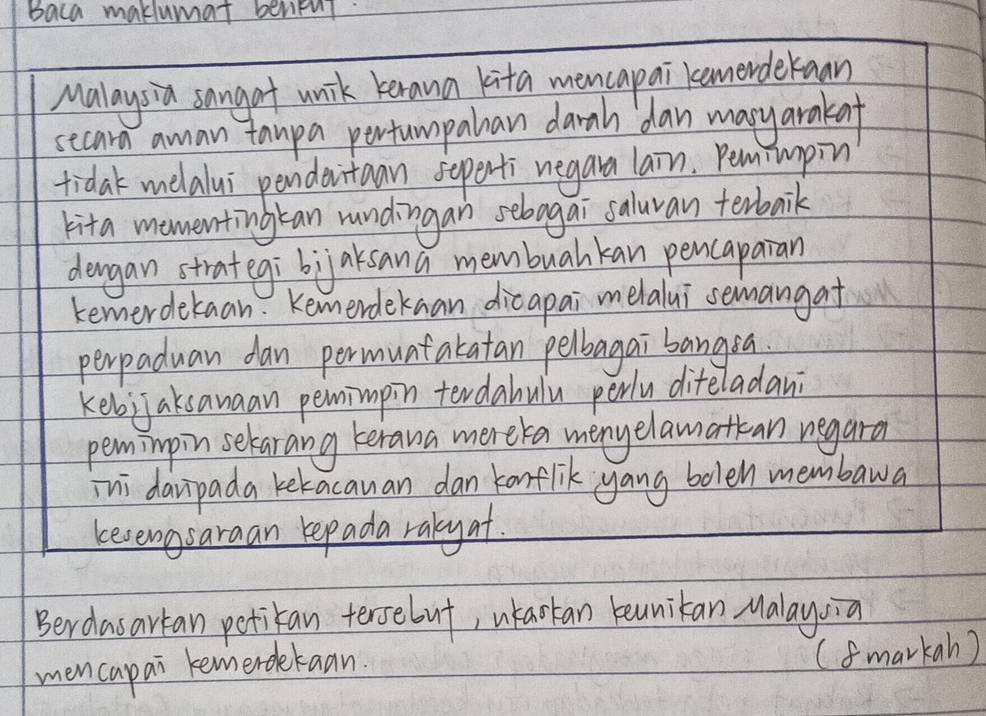 Baca maklumat berikut.
Malaysia sangat unik kerana kita mencapai kemerdekaan
secara aman tanpa pertumpahan darah dan masyarakat
tidak melalui penderitaan seperti negara lain. Pemimpin
kita mementingkan rundingan sebagai saluran terbaik
dengan strategi bijaksana membuahkan pencapaian
kemerdekaan. Kemerdekaan dicapai melalui semangat
perpaduan dan permuafakatan pelbagai bangsa
kebijaksanaan pemimpin terdahulu perlu diteladani
pemimpin sekarang kerana mereka menyelamatkan negara
ini daripada kekacauan dan konflik yang boleh membawa
kesengsaraan kepada rakyat.
Berdasarkan petikan tersebut, ukaskan keunikan Malaysia
mencapai kemerdekaan.
(8 markah)